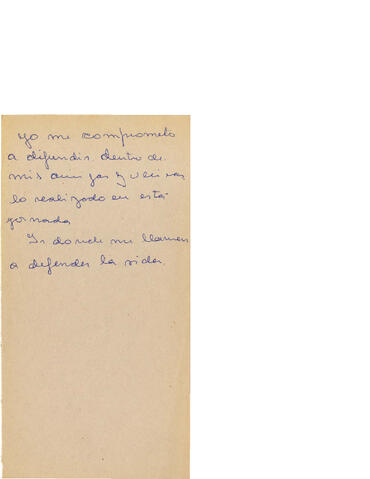 yo me comprometo
a difundir dentro de
mis amigas y vecinas
lo realizado en esta
jornada
Ir donde me llamen
a defender la vida.